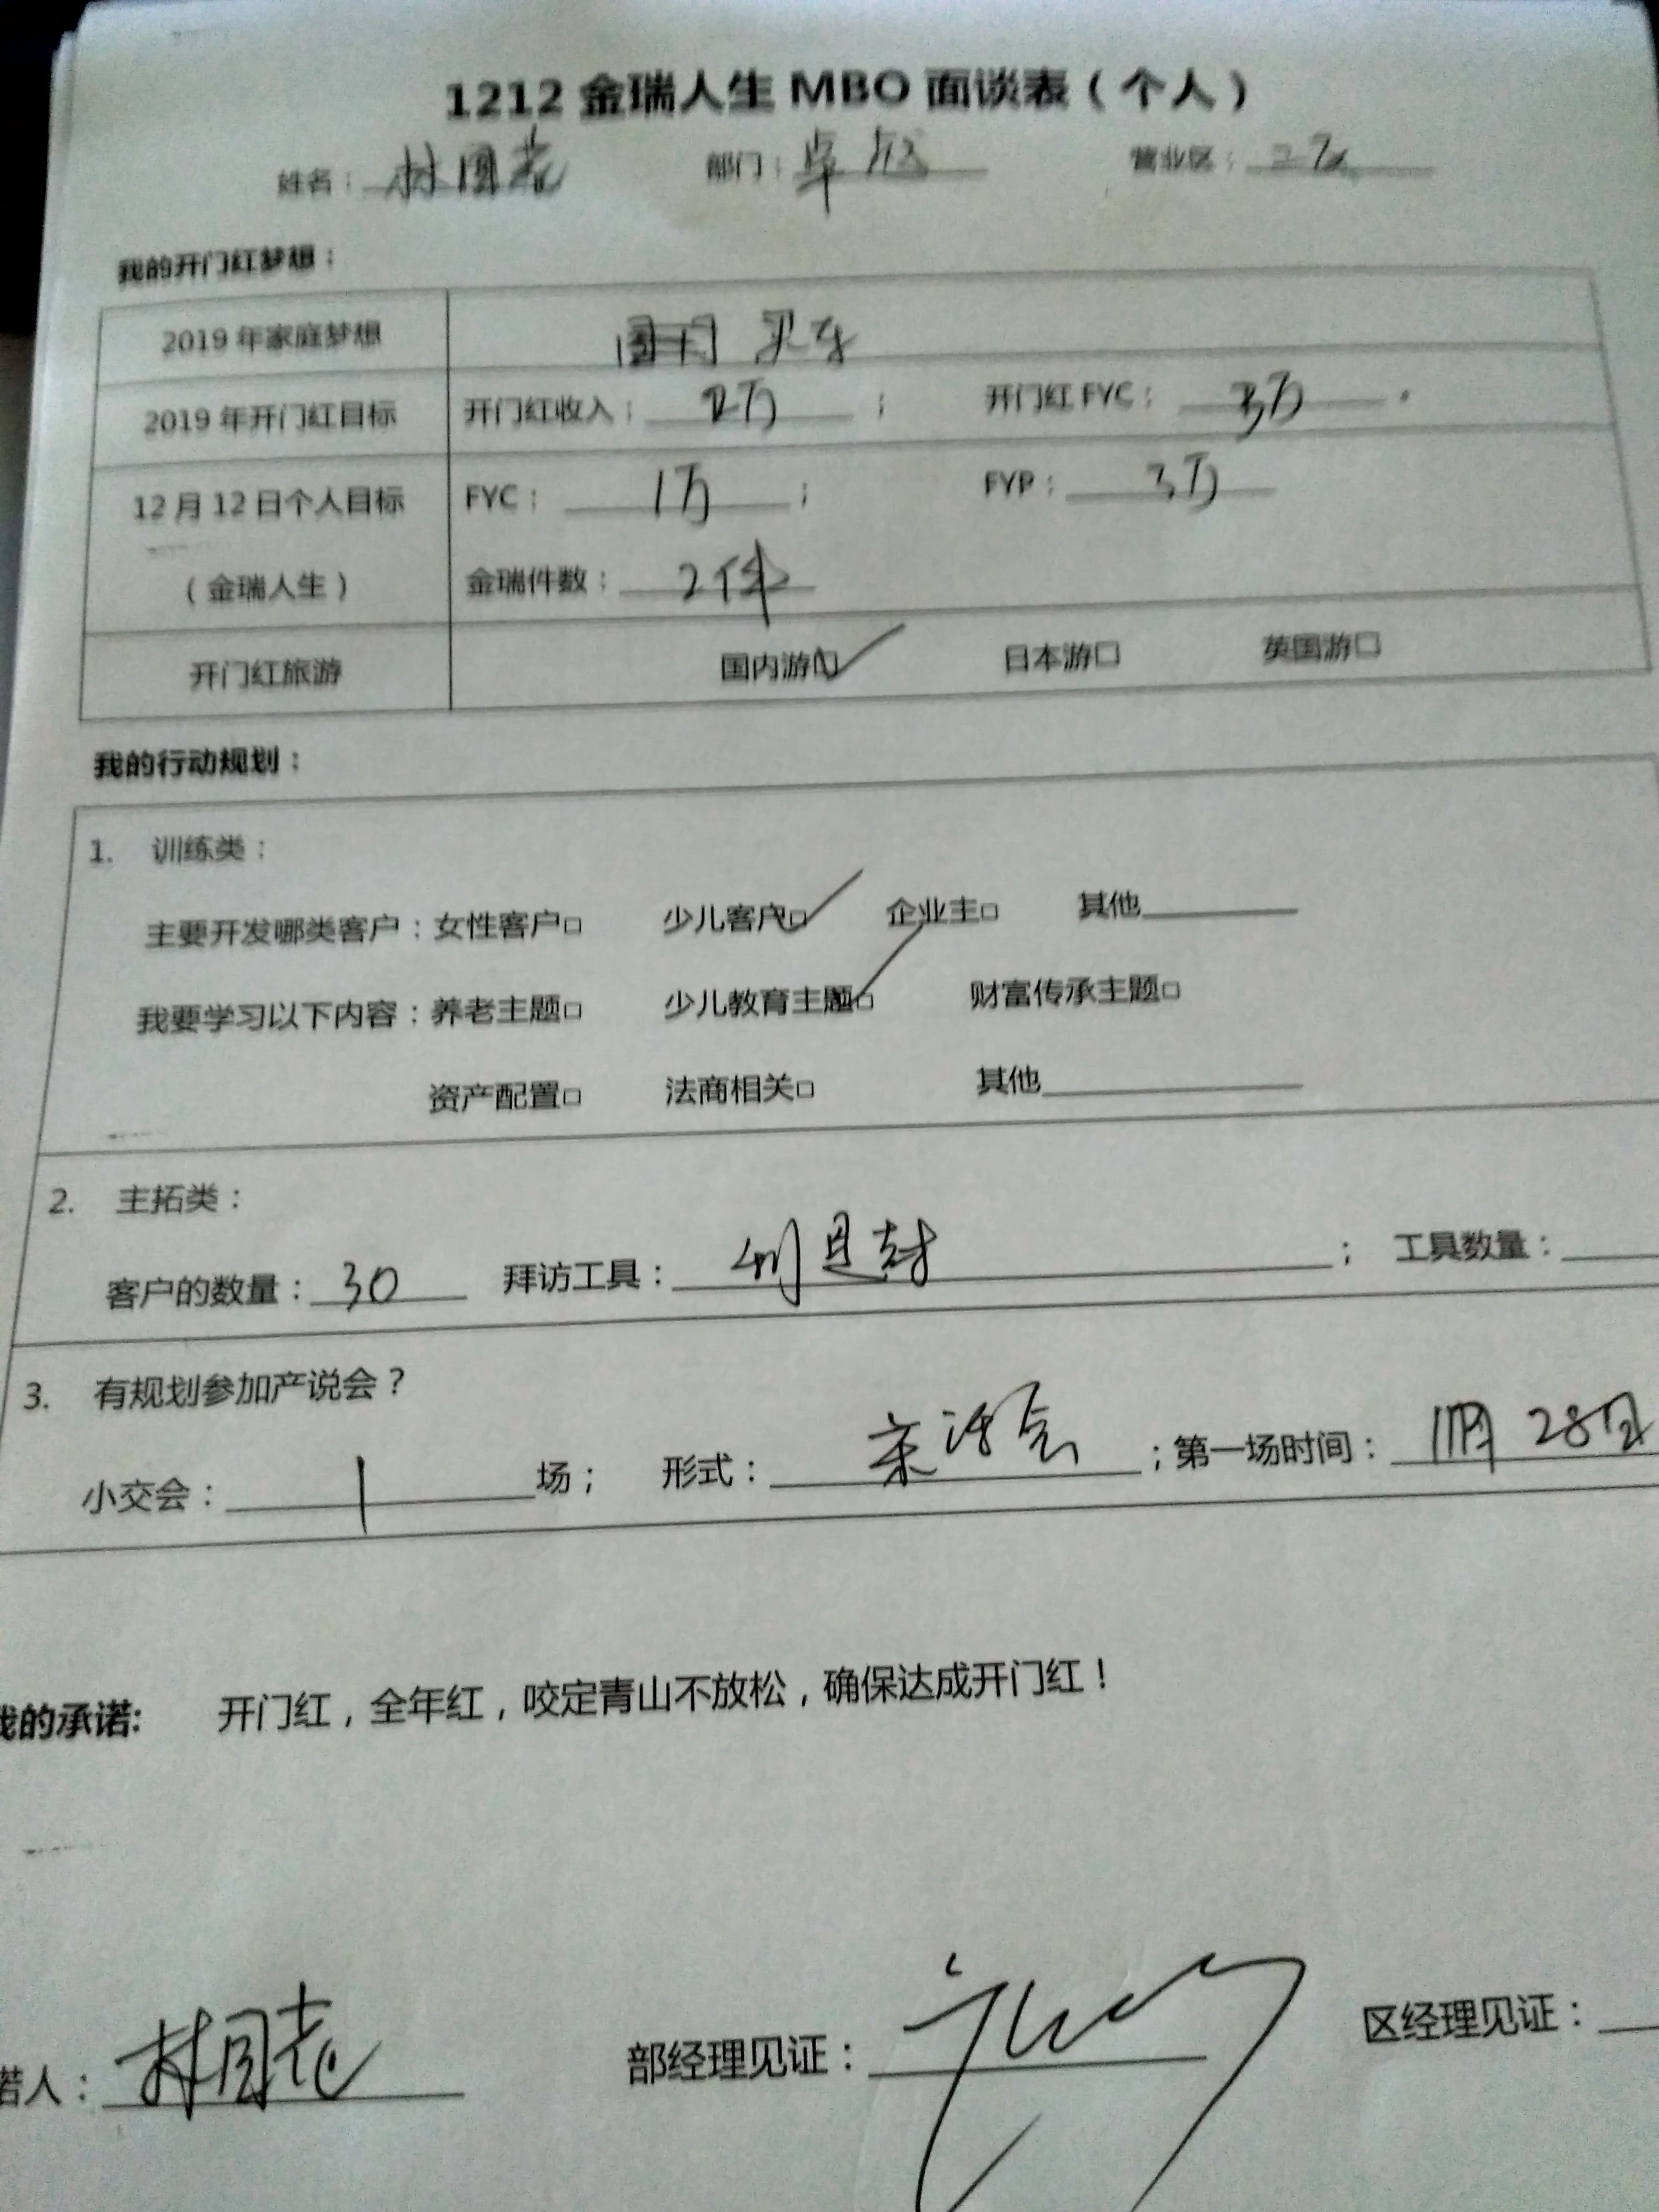 1212金瑞人生MBO面谈表（个人）
姓名： 部门：卓 营业区：
我的开门红梦想：
2019年家庭梦想 买车
2019年开门红目标 开门红收入：2万； 开门红FYC：3万。
12月12日个人目标 FYC：1万； FYP：3万
（金瑞人生） 金瑞件数：2件
开门红旅游 国内游☑ 日本游□ 英国游□
我的行动规划：
1. 训练类：
主要开发哪类客户：女性客户□ 少儿客户☑ 企业主□ 其他
我要学习以下内容：养老主题□ 少儿教育主题☑ 财富传承主题□
资产配置□ 法商相关□ 其他
2. 主拓类：
客户的数量：30 拜访工具： ； 工具数量：
3. 有规划参加产说会？
小交会：1场； 形式： ；第一场时间：11月28日
我的承诺: 开门红，全年红，咬定青山不放松，确保达成开门红！
诺人： 部经理见证： 区经理见证：